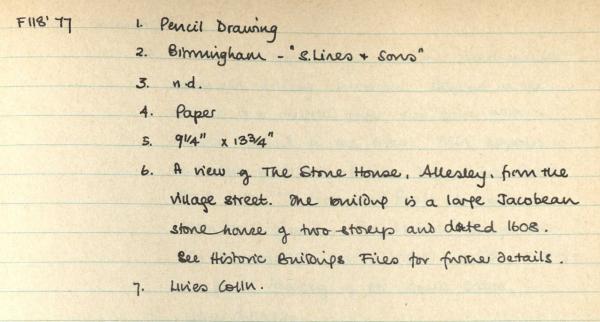 F118' 77 1. Pencil Drawing
2. Birmingham - "S. Lines + Sons"
3. n.d.
4. Paper
5. 9 1/4" x 13 3/4"
6. A view of The Stone House, Allesley, from the
village street. The building is a large Jacobean
stone house of two storeys and dated 1608.
See Historic Buildings Files for further details.
7. Lines Colln.